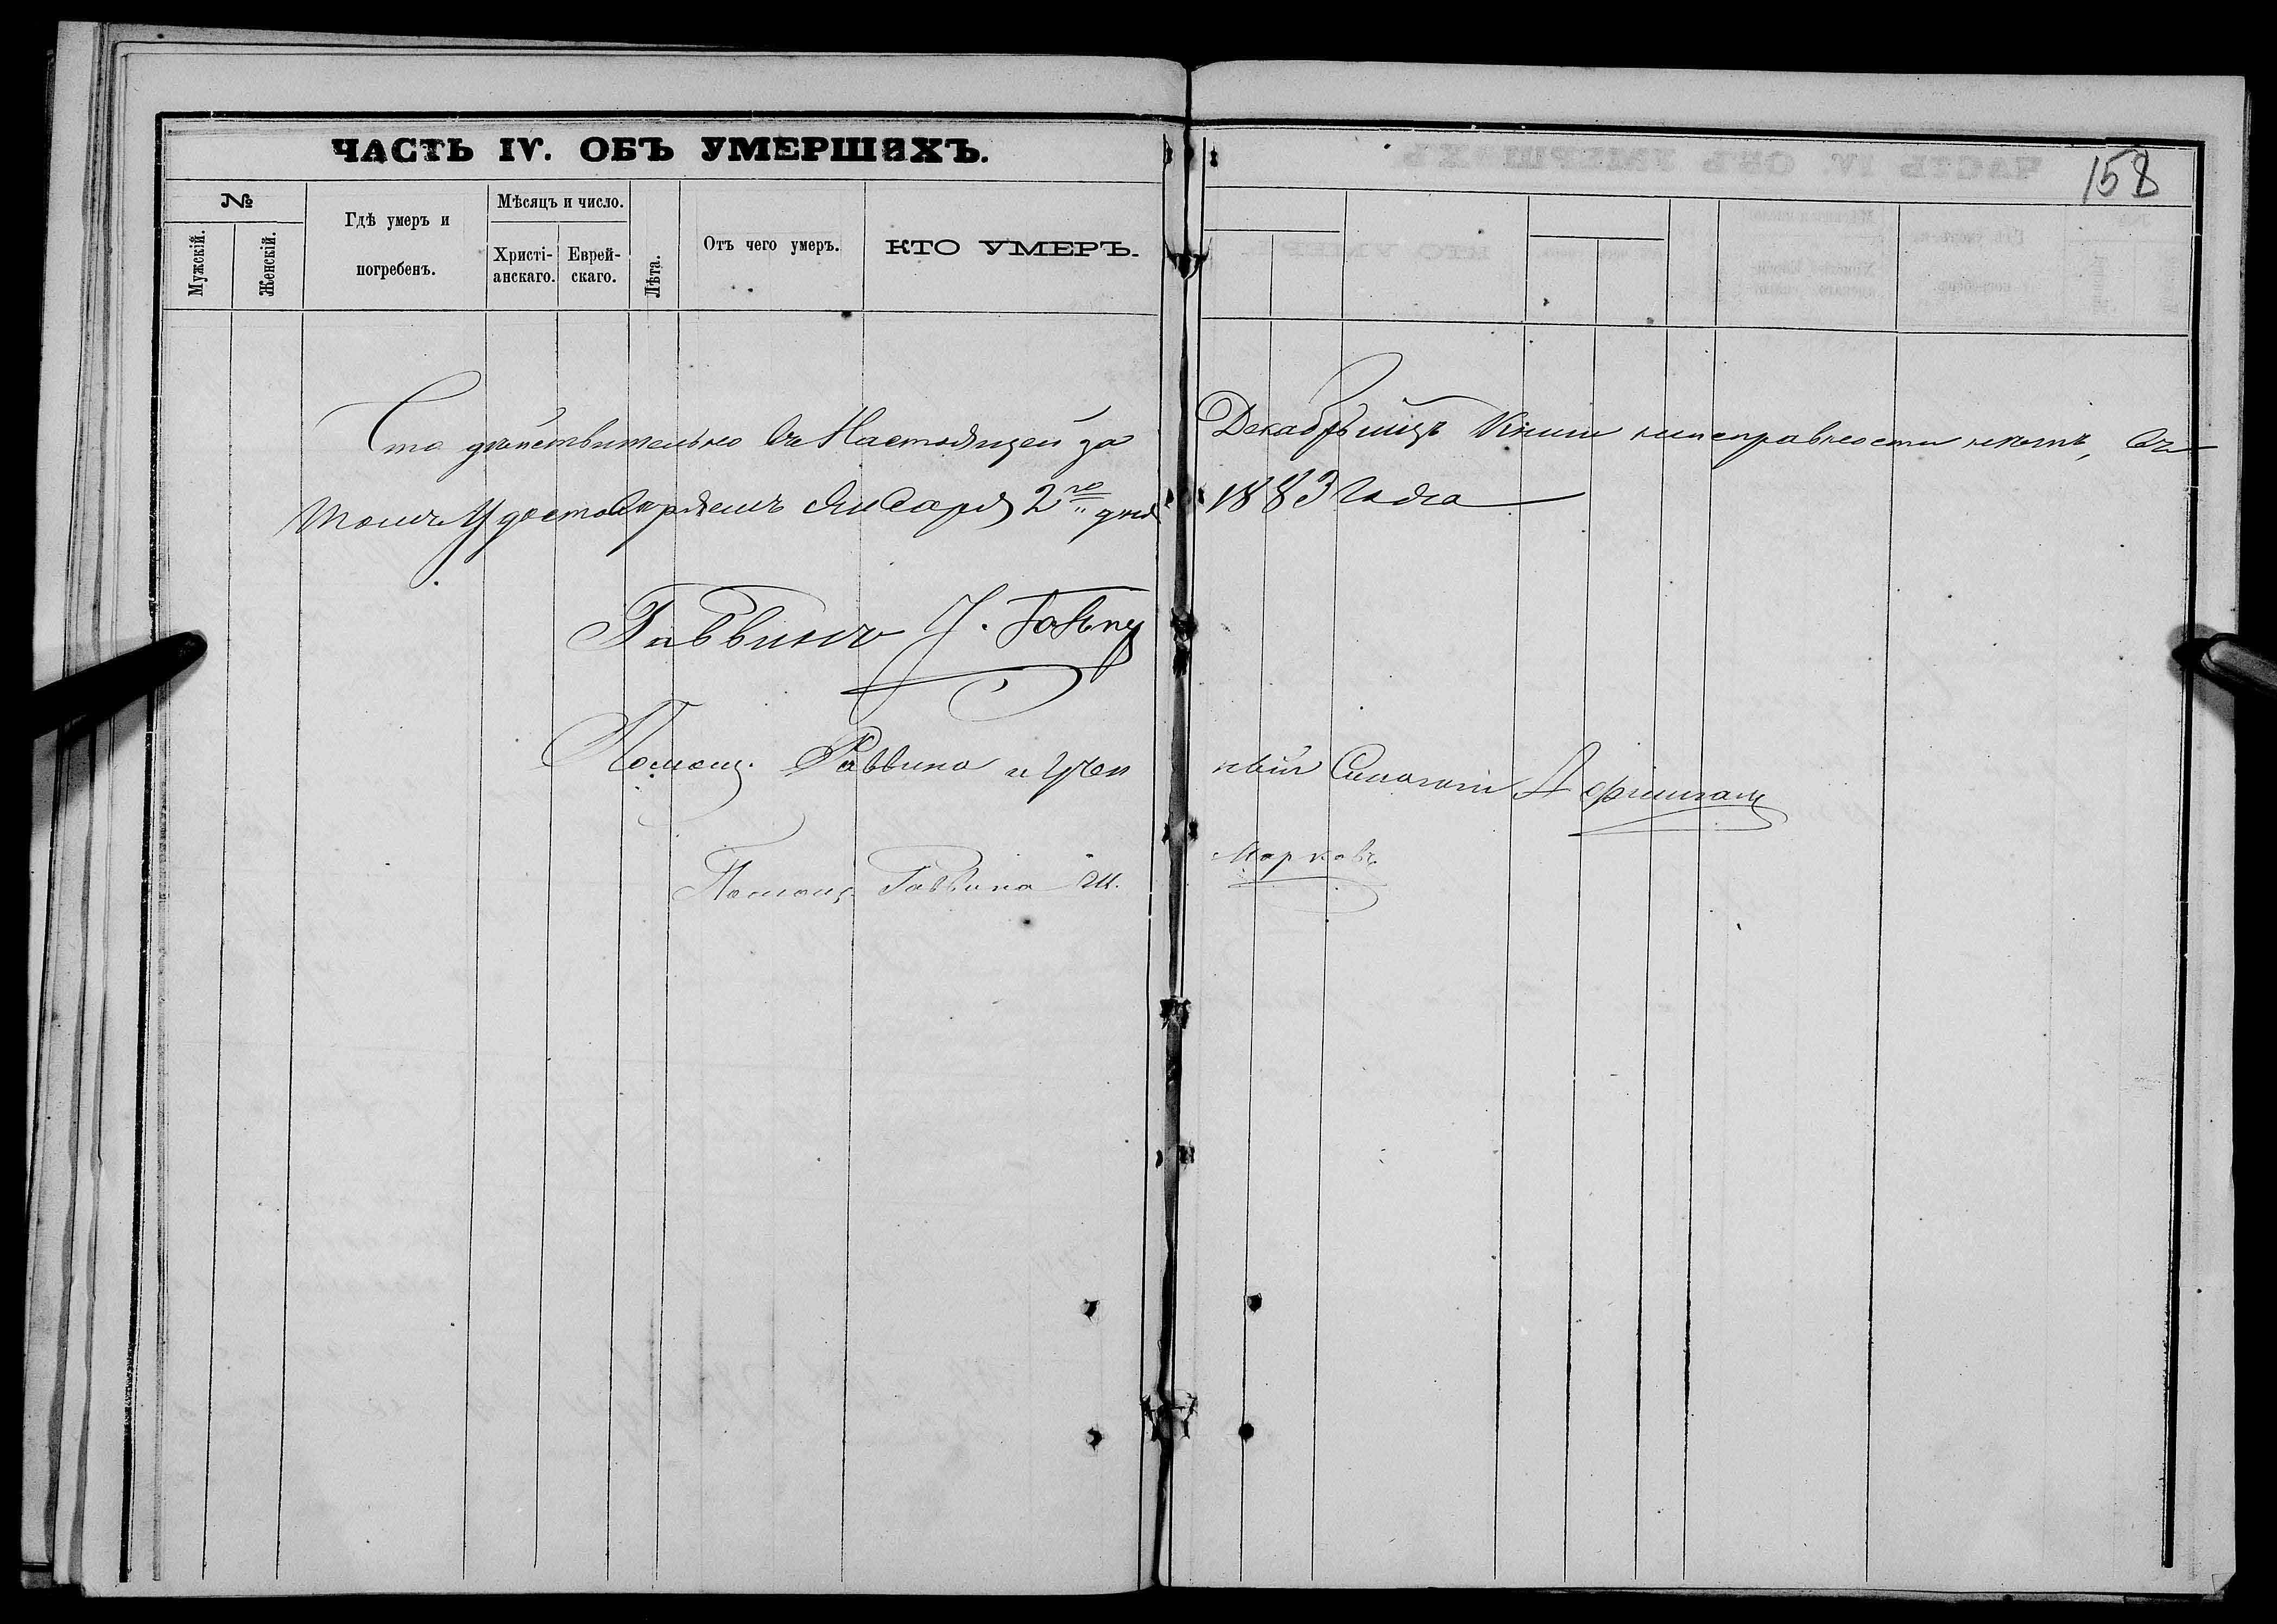 ЧАСТЬ IV. ОБЪ УМЕРШИХЪ.
158
№
Мужскій.
Женскій.
Гдѣ умеръ и
погребенъ.
Мѣсяцъ и число.
Христі-
анскаго.
Еврей-
скаго.
Лѣта.
Отъ чего умеръ.
КТО УМЕРЪ.
Что дѣйствительно въ Настоящей за Декабрь мцъ Книги неисправности нѣтъ, въ
томъ Удостовѣряемъ Января 2го дня 1883 Года
Раввинъ
Помощ. Раввина и Учен ный
Помощ. Раввина М. Марковъ